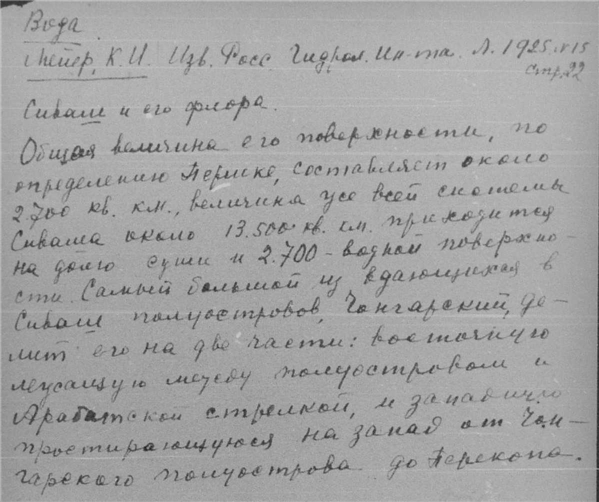 Вода.
Мейер, К.И. Изв. Росс. Гидрол. Ин-та. Л. 1925. №15
стр. 22
Сиваш и его флора.
Общая величина его поверхности, по
определению составляет около
2.700 кв. км., величина же всей системы
Сиваша около 13.500 кв. км. приходится
на долю суши и 2.700 - водной поверхно-
сти. Самый большой из вдающихся в
Сиваш полуостровов, Чонгарский, де-
лит его на две части: восточную
лежащую между полуостровом и
Арабатской стрелкой, и западную
простирающуюся на запад от Чон-
гарского полуострова до Перекопа.